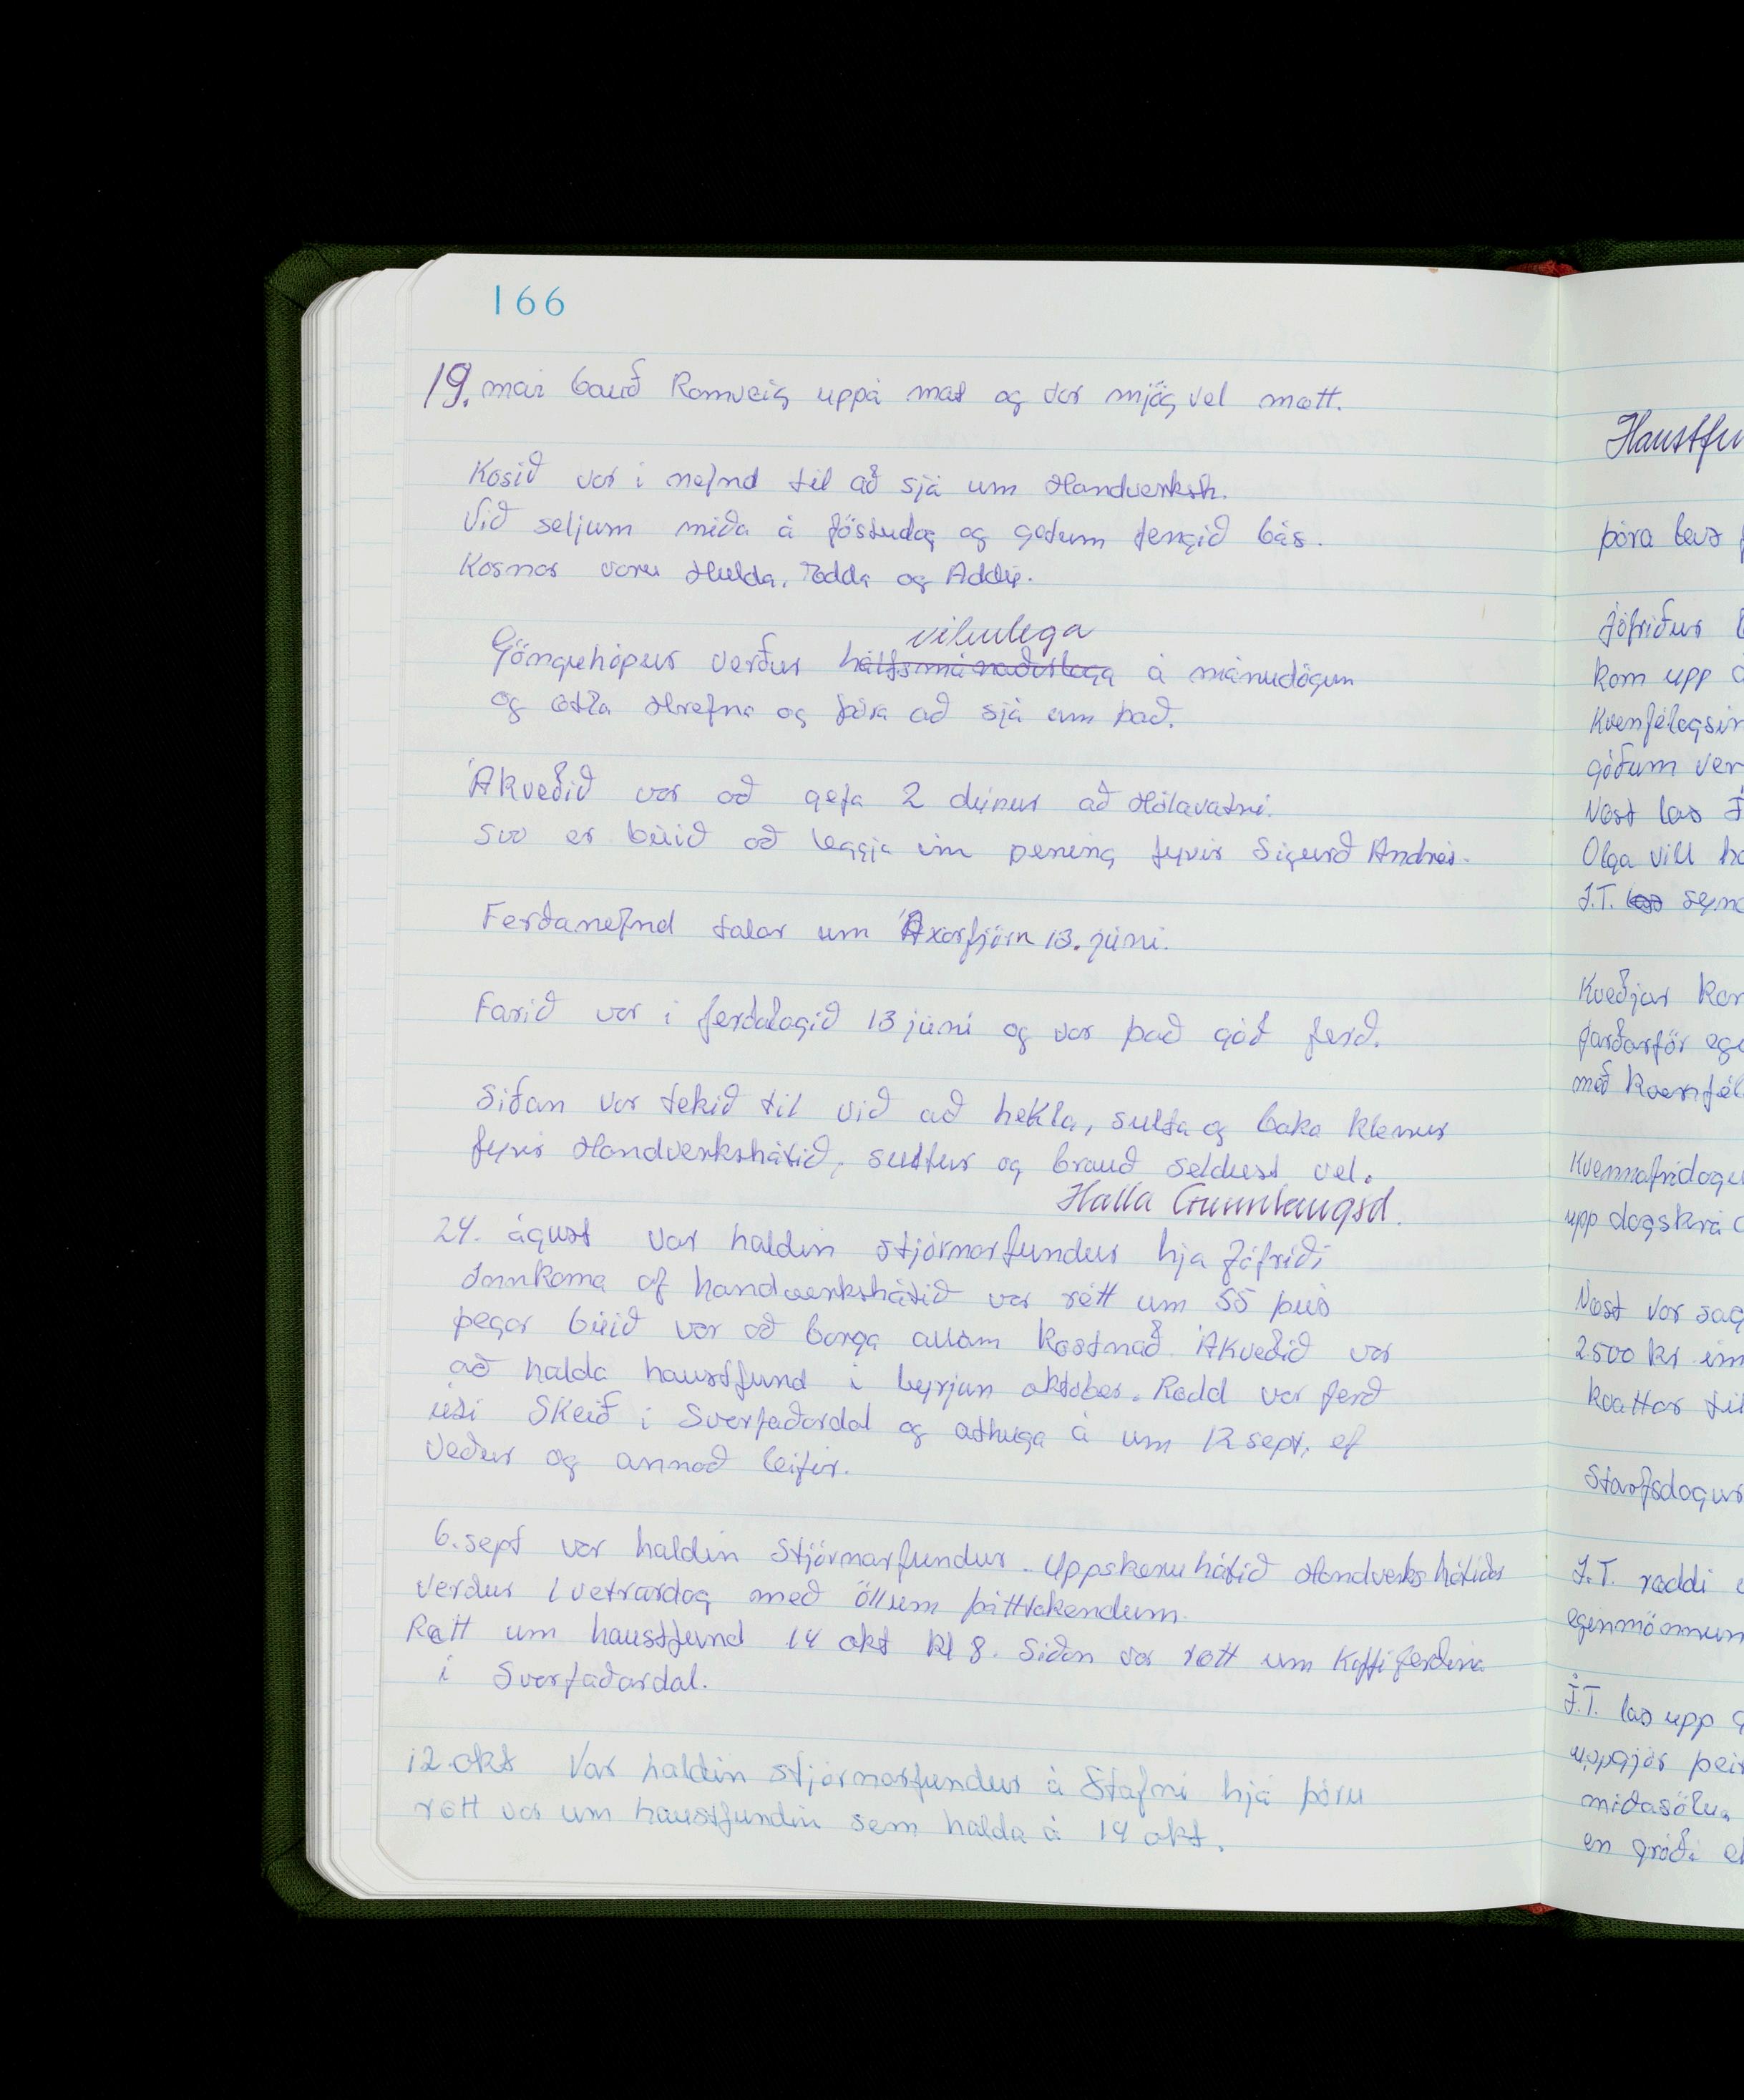 166
19. mai bauð Romveig uppá mat og var mjög vel mætt.
Kosið var i nefnd til að sjá um Handverksh.
Við seljum miða á föstudag og getum fengið bás.
Kosnar voru Hulda, Todda og Addý.
vikulega
Gönguhópur verður hálfsmánaðarlega á mánudögum
og ætla Hrefna og Þóra að sjá um það.
Ákveðið var að gefa 2 dýnur að Hólavatni.
Svo er búið að leggja inn pening fyrir Sigurð Andrés.
Ferðanefnd talar um Axarfjörn 13. júni.
Farið var i ferðalagið 13 júni og var það góð ferð.
Siðan var tekið til við að hekla, sulta og baka kleinur
fyrir Handverkshátið, sultur og brauð seldust vel.
Halla Gunnlaugsd.
24. águst var haldin stjórnarfundur hja Jófriði
Innkoma af handverkshátið var rétt um 55 þús
þegar búið var að borga allan kostnað. Ákveðið var
að halda haustfund i byrjun oktober. Rædd var ferð
úti Skeið i Svarfaðardal og athuga á um 12 sept, ef
veður og annað leifir.
6. sept var haldin stjórnarfundur. Uppskeruhátið Handverkshátiðar
verður 1 vetrardag með öllum þátttakendum.
Rætt um haustfund 14 okt kl 8. Siðan var rætt um kaffiferðina
i Svarfaðardal.
12. okt Var haldin stjórnarfundur á Stafni hjá Þóru
rætt var um haustfundin sem halda á 14 okt.
Haustfu
Þóra las
Jófriður
kom upp
Kvenfélagsin
góðum ver
Næst las
Olga vill ha
J.T. las sýnd
Kveðjur kom
jarðarför
með kvenfél
Kvennafridagu
upp dagskrá
Næst var sag
2500 kr inn
kvattar til
Starfsdagur
J.T. ræddi
eginmönnum
J.T. las upp
uppgjör þeir
miðasölu,
en gróði